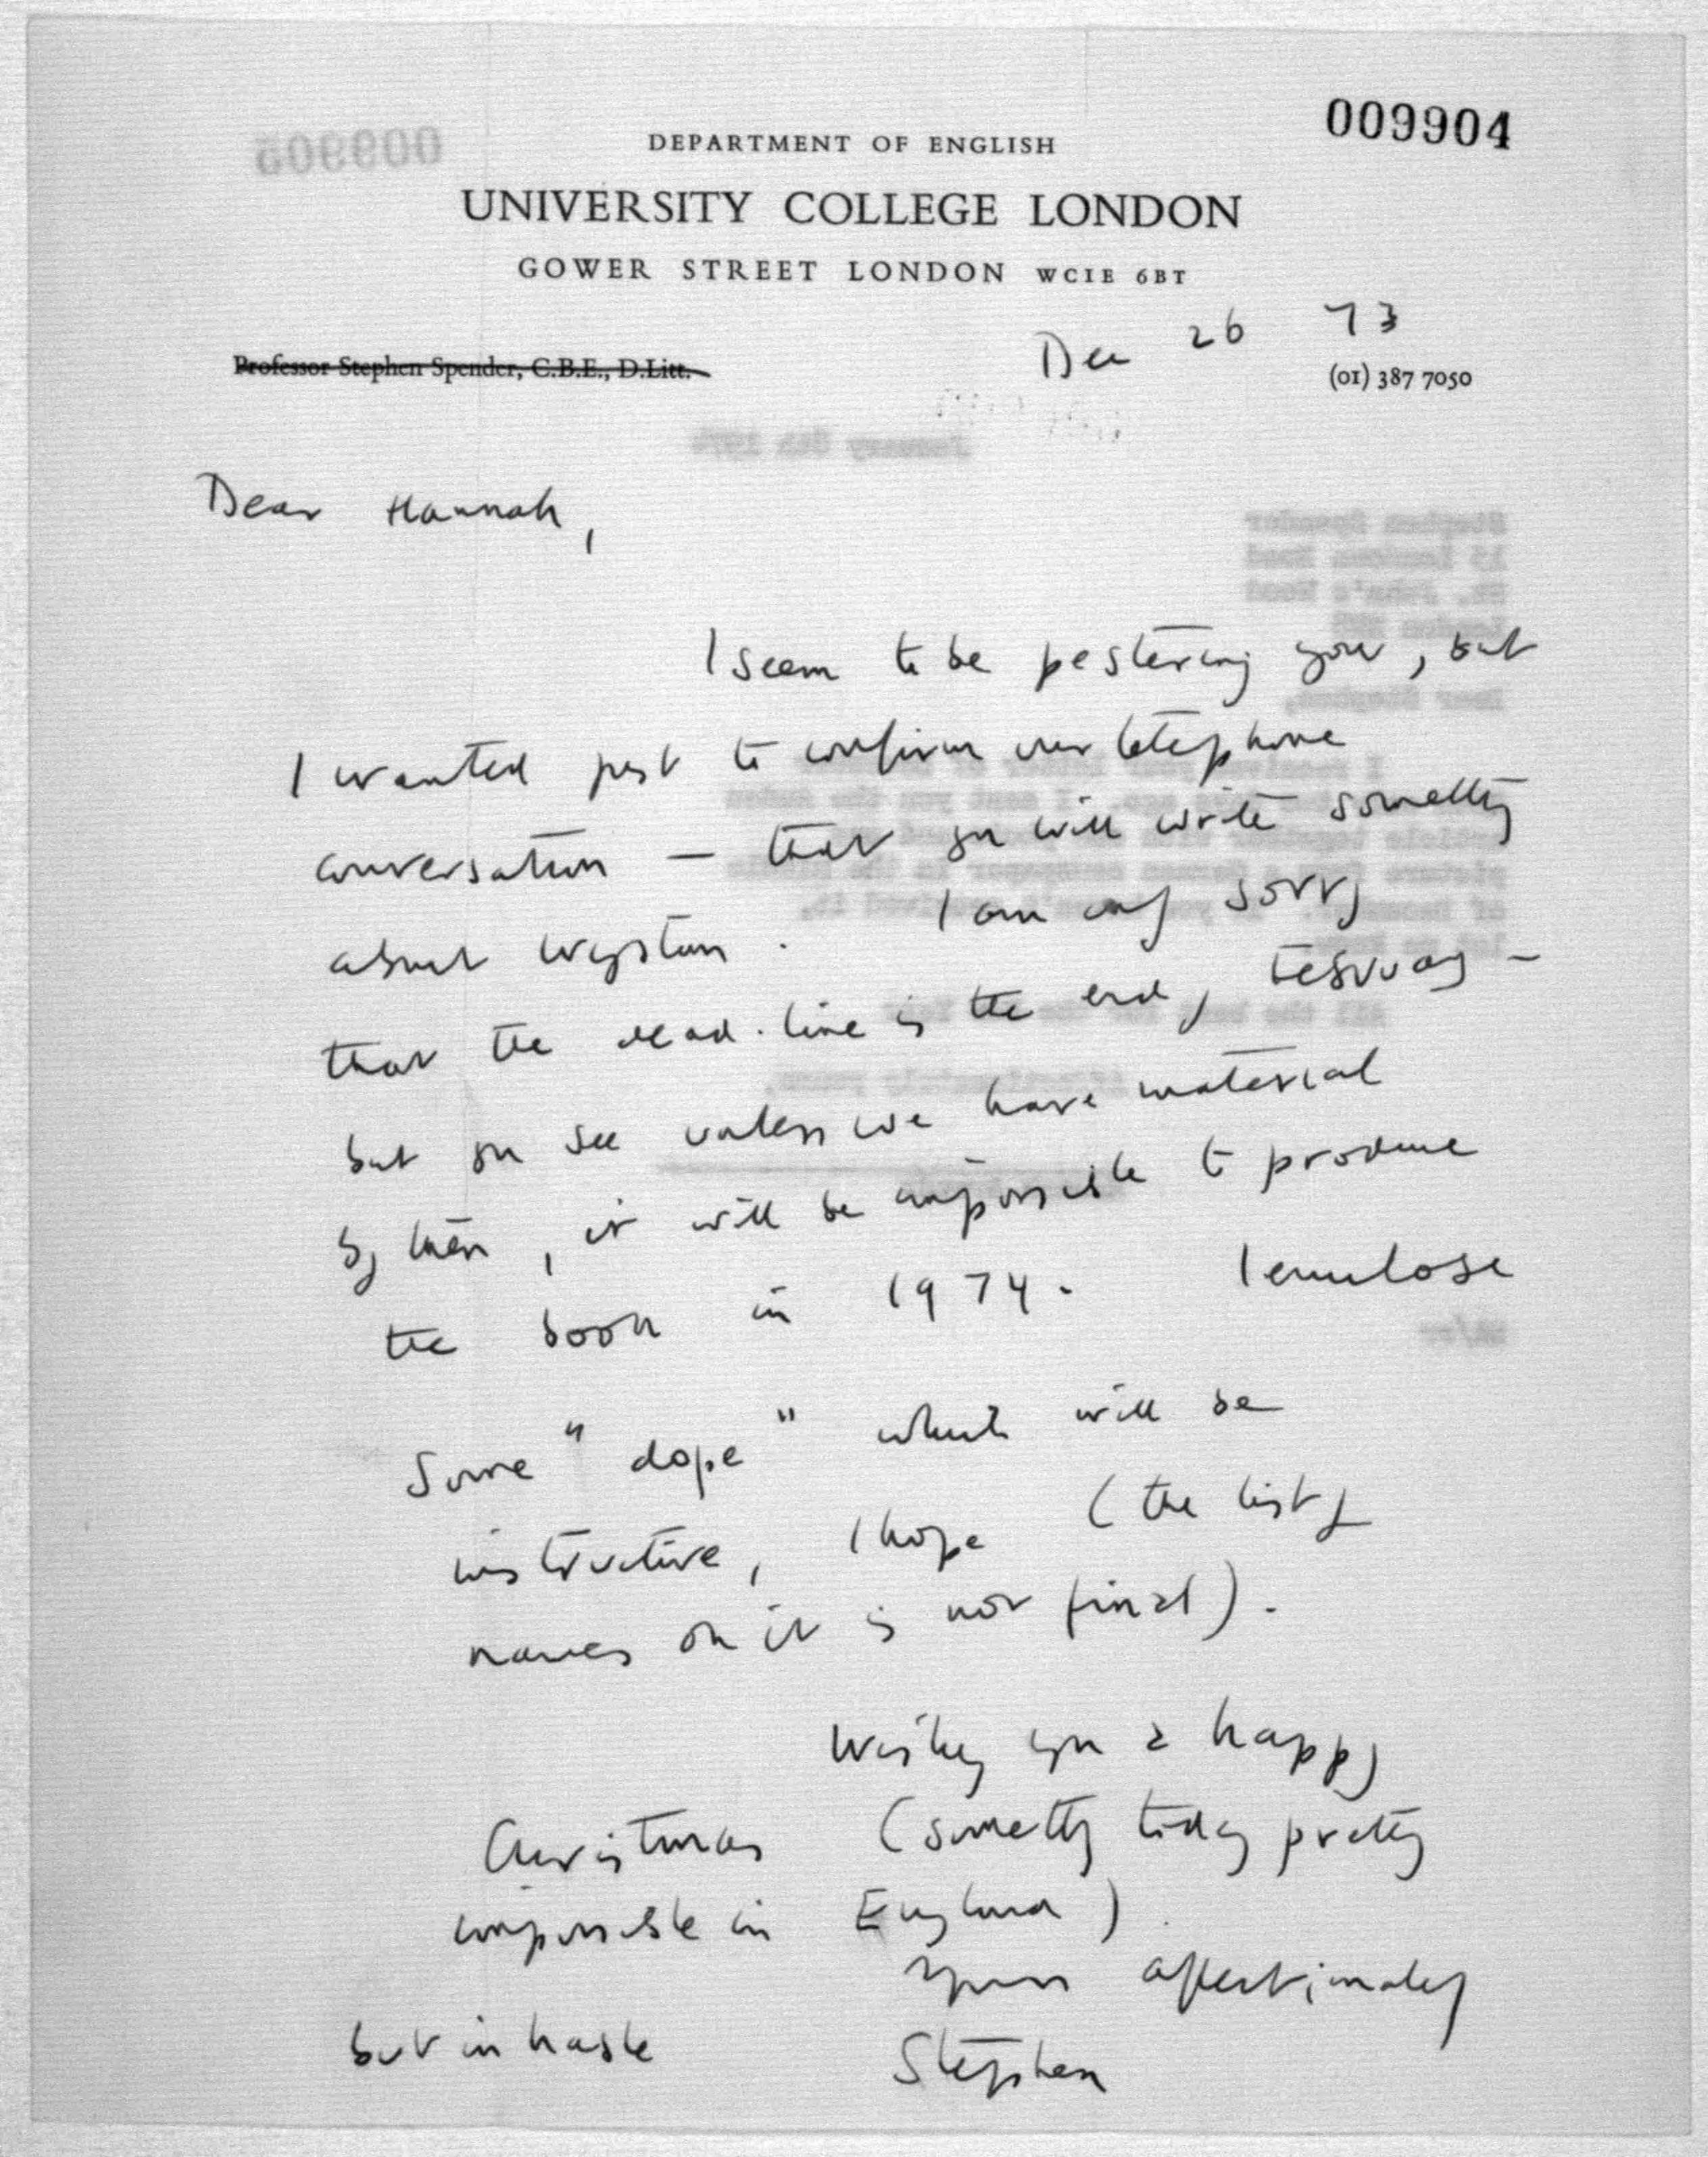 009904
DEPARTMENT OF ENGLISH
UNIVERSITY COLLEGE LONDON
GOWER STREET LONDON WC1E 6BT
Dec 26 73
Professor Stephen Spender, C.B.E., D.Litt.
(01) 387 7050
Dear Hannah,
I seem to be pestering you, but
I wanted just to confirm our telephone
conversation — that you will write something
about Wystan. I am only sorry
that the dead-line is the end of February —
but you see unless we have material
by then, it will be impossible to produce
the book in 1974. I enclose
some "dope" which will be
instructive, I hope (the list of
names on it is not final).
Wishing you a happy
Christmas (something today pretty
impossible in England)
Yours affectionately
but in haste
Stephen